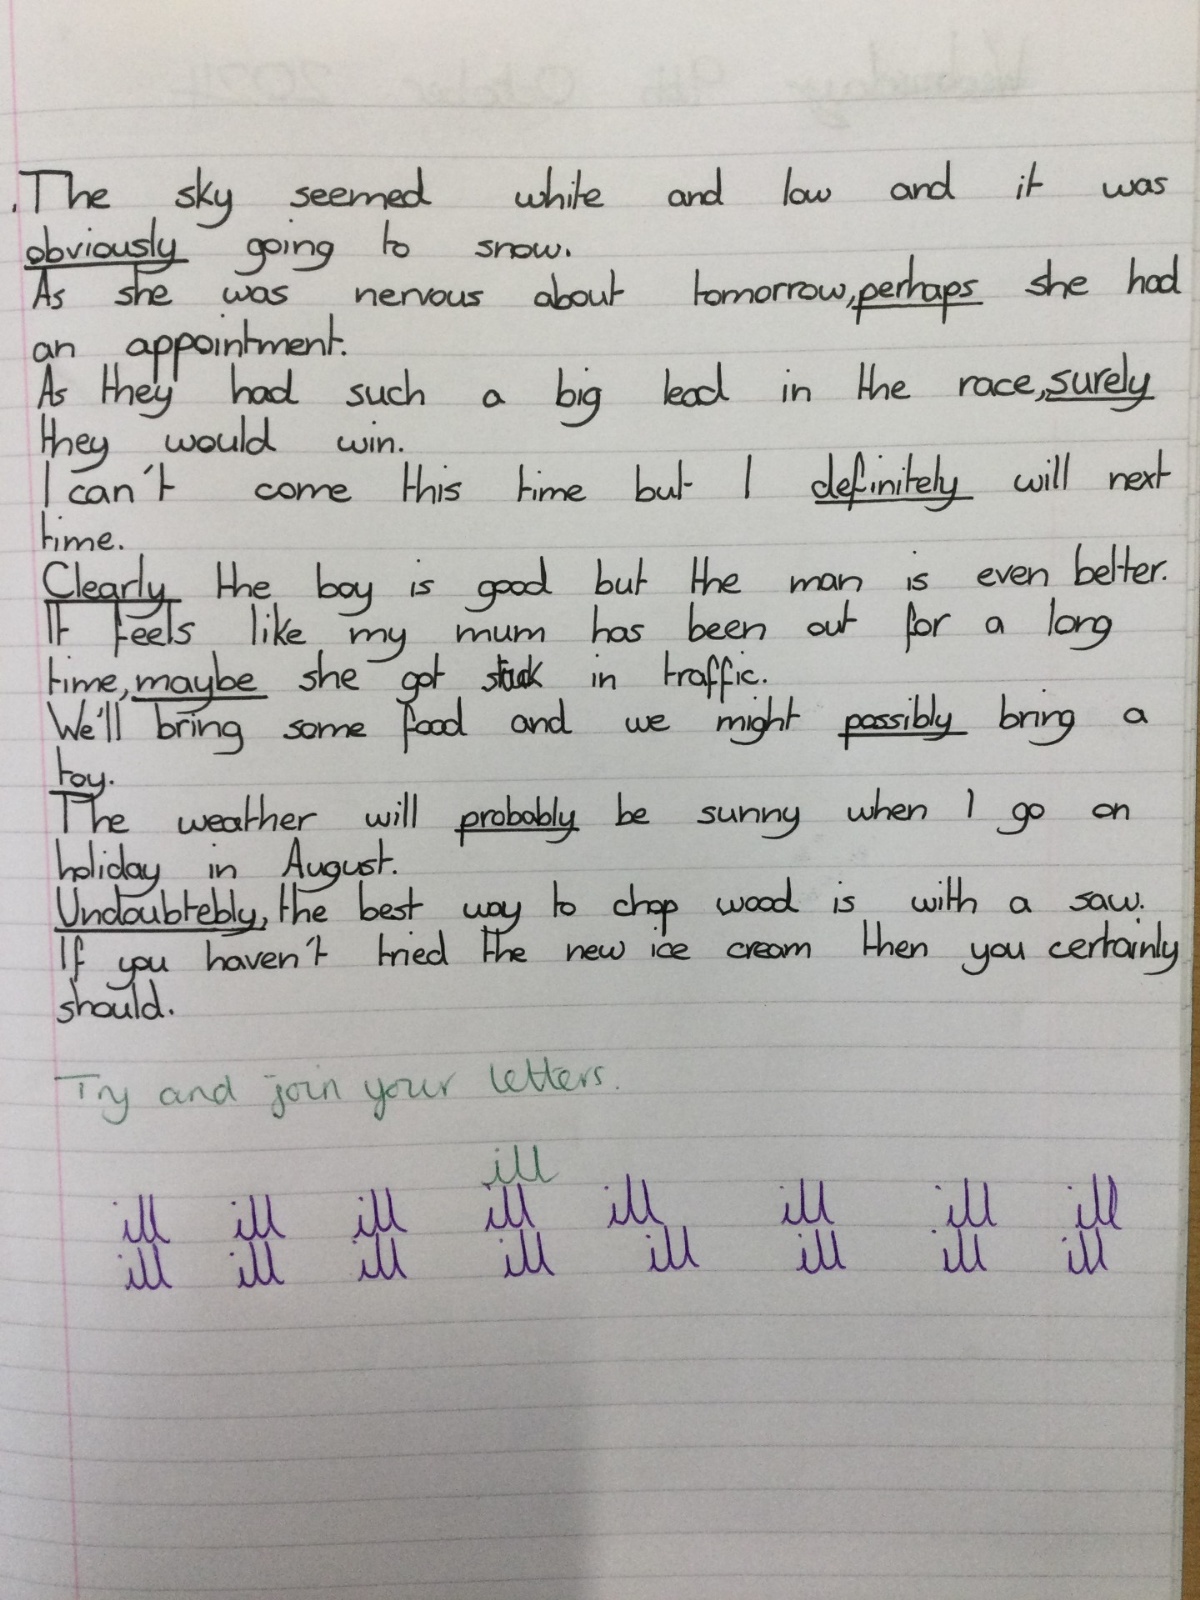 The sky seemed white and low and it was
obviously going to snow.
As she was nervous about tomorrow, perhaps she had
an appointment.
As they had such a big lead in the race, surely
they would win.
I can't come this time but I definitely will next
time.
Clearly the boy is good but the man is even better.
It feels like my mum has been out for a long
time, maybe she got stuck in traffic.
We'll bring some food and we might possibly bring a
toy.
The weather will probably be sunny when I go on
holiday in August.
Undoubtebly, the best way to chop wood is with a saw.
If you haven't tried the new ice cream then you certainly
should.
Try and join your letters.
ill
ill ill ill ill ill ill ill ill
ill ill ill ill ill ill ill ill